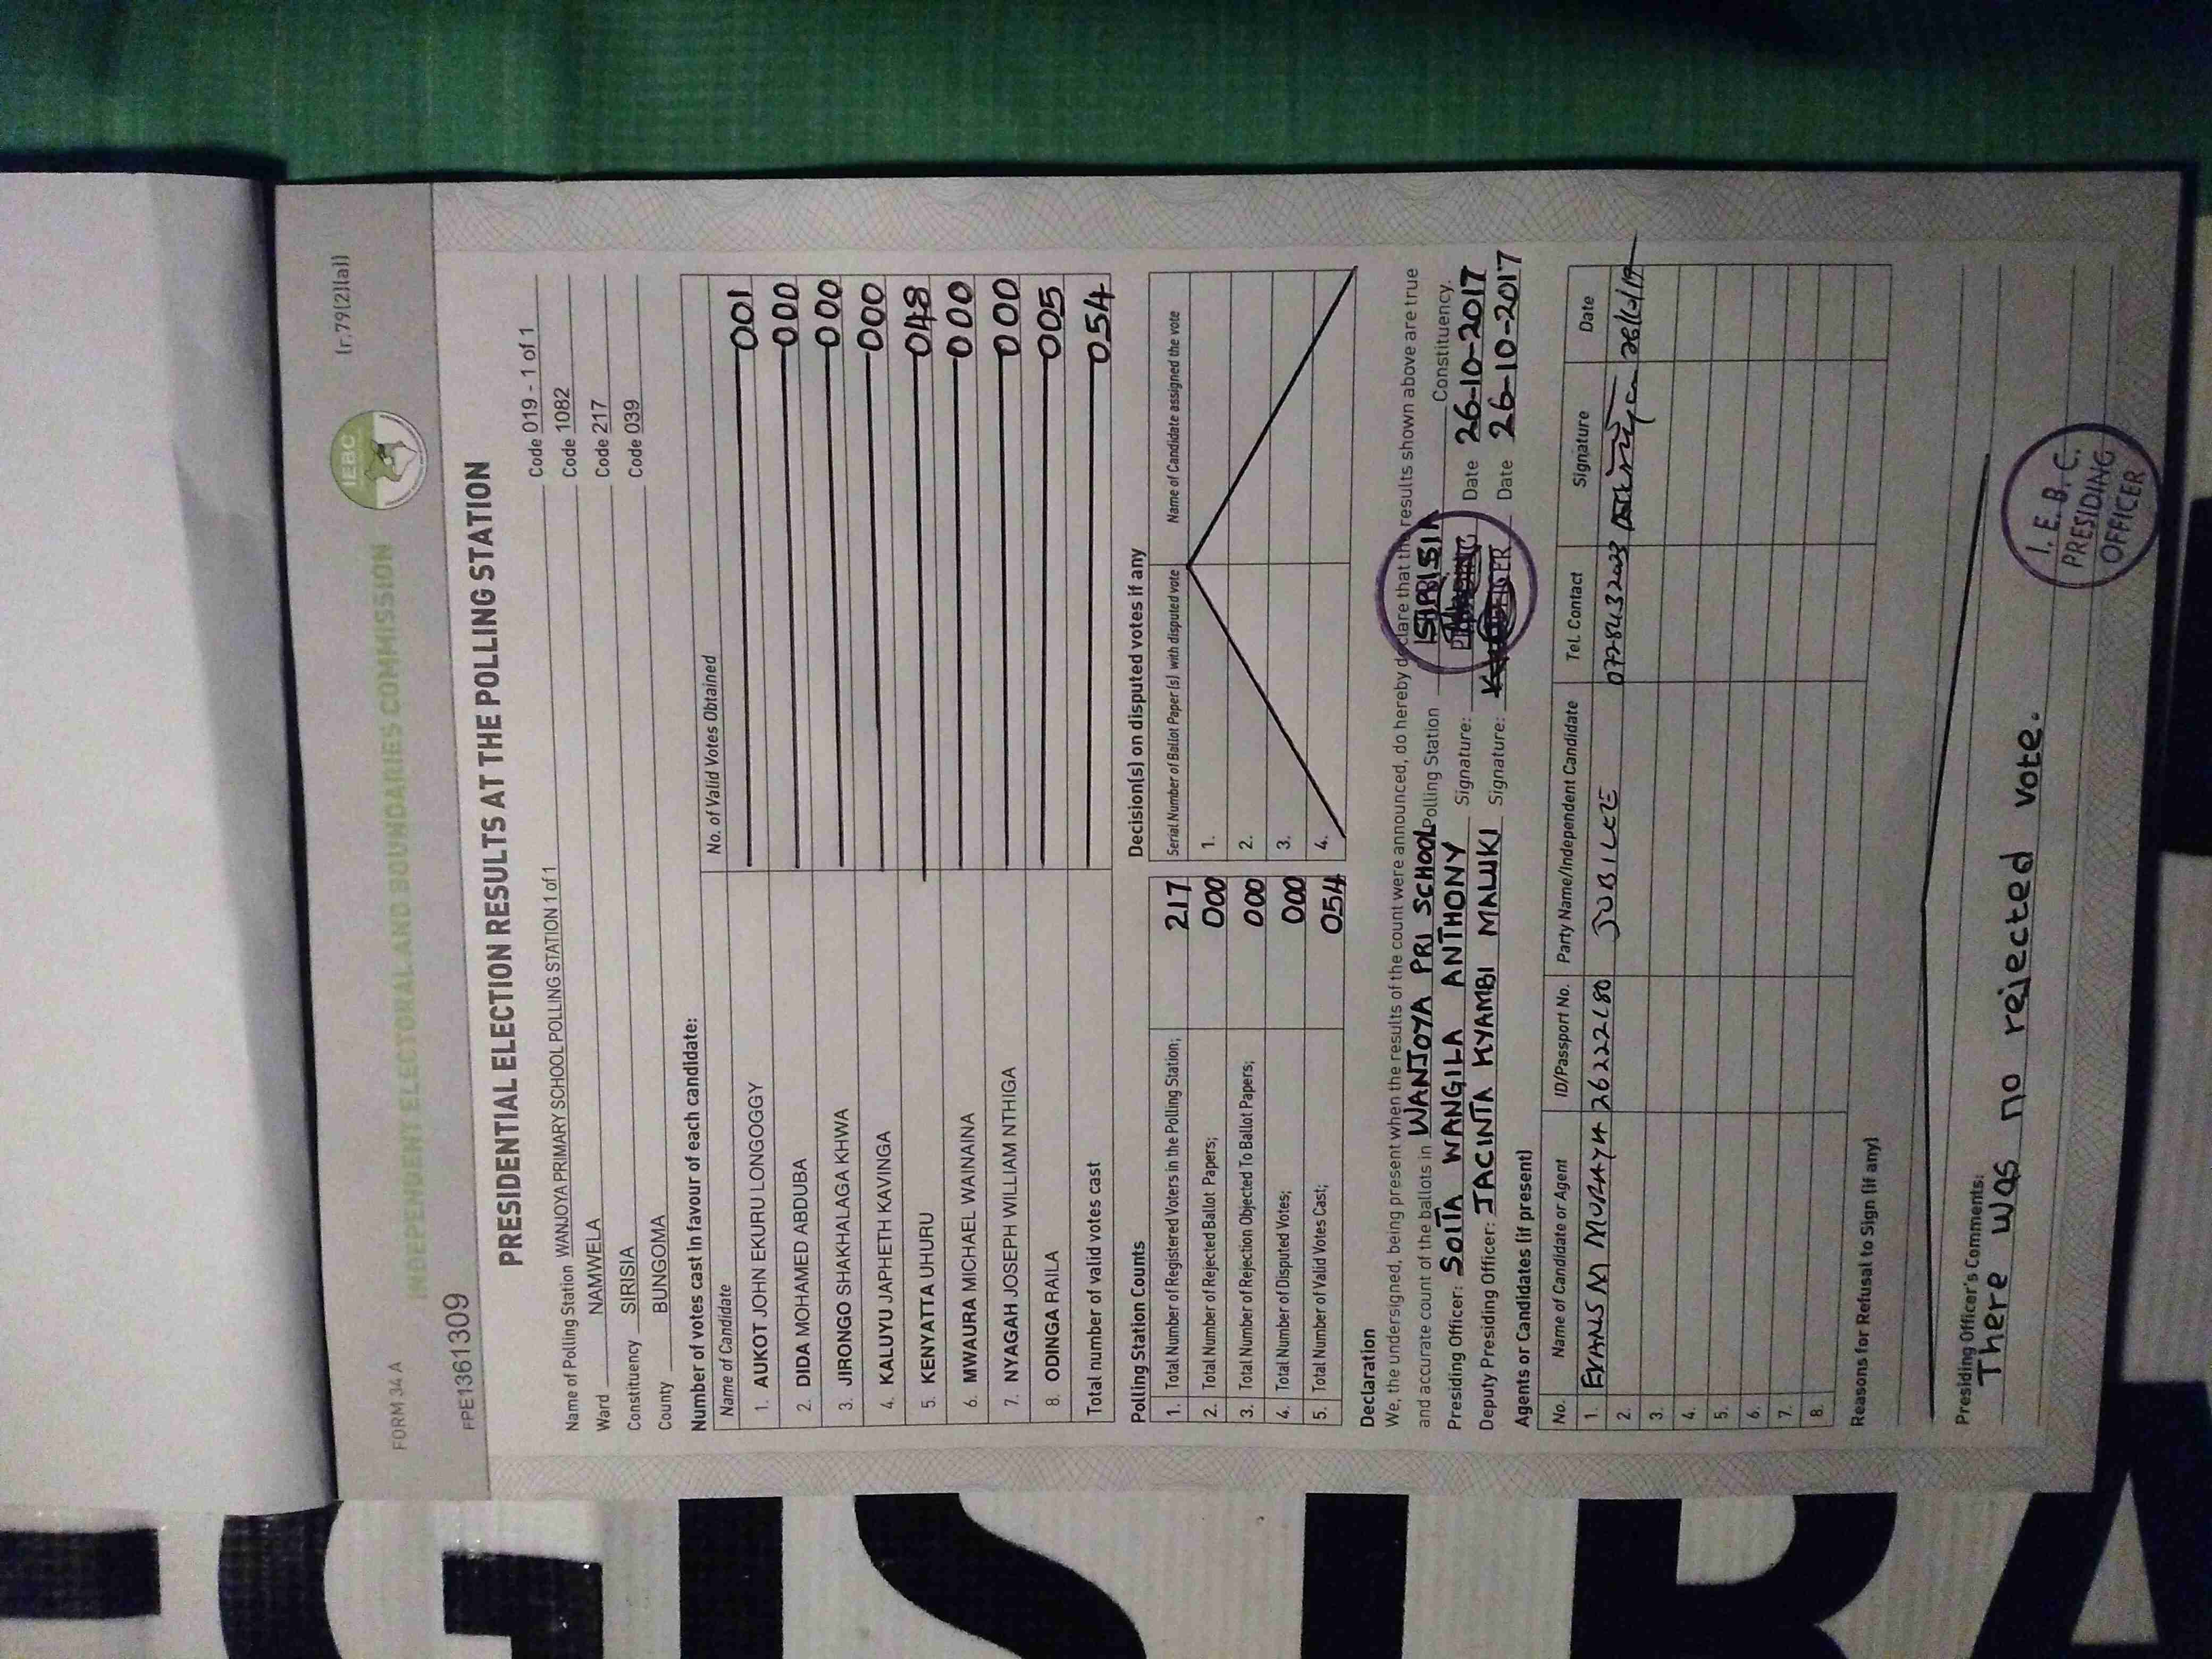 FORM 34 A
(r.79(2)(a))
INDEPENDENT ELECTORAL AND BOUNDARIES COMMISSION
IEBC
FPE1361309
PRESIDENTIAL ELECTION RESULTS AT THE POLLING STATION
Name of Polling Station WANJOYA PRIMARY SCHOOL POLLING STATION 1 of 1 Code 019 - 1 of 1
Ward NAMWELA Code 1082
Constituency SIRISIA Code 217
County BUNGOMA Code 039
Number of votes cast in favour of each candidate:
Name of Candidate No. of Valid Votes Obtained
1. AUKOT JOHN EKURU LONGOGGY 001
2. DIDA MOHAMED ABDUBA 000
3. JIRONGO SHAKHALAGA KHWA 000
4. KALUYU JAPHETH KAVINGA 000
5. KENYATTA UHURU 048
6. MWAURA MICHAEL WAINAINA 000
7. NYAGAH JOSEPH WILLIAM NTHIGA 000
8. ODINGA RAILA 005
Total number of valid votes cast 054
Polling Station Counts
1. Total Number of Registered Voters in the Polling Station; 217
2. Total Number of Rejected Ballot Papers; 000
3. Total Number of Rejection Objected To Ballot Papers; 000
4. Total Number of Disputed Votes; 000
5. Total Number of Valid Votes Cast; 054
Decision(s) on disputed votes if any
Serial Number of Ballot Paper (s) with disputed vote Name of Candidate assigned the vote
1.
2.
3.
4.
Declaration
We, the undersigned, being present when the results of the count were announced, do hereby declare that the results shown above are true
and accurate count of the ballots in WANJOYA PRI SCHOOL Polling Station SIRISIA Constituency.
Presiding Officer: SOITA WANGILA ANTHONY Signature: Date 26-10-2017
Deputy Presiding Officer: JACINTA KYAMBI MALUKI Signature: Date 26-10-2017
Agents or Candidates (if present)
No. Name of Candidate or Agent ID/Passport No. Party Name/Independent Candidate Tel. Contact Signature Date
1. EVANS M 26222180 JUBILEE
2.
3.
4.
5.
6.
7.
8.
Reasons for Refusal to Sign (if any)
Presiding Officer's Comments:
There was no rejected vote.
I.E.B.C.
PRESIDING
OFFICER